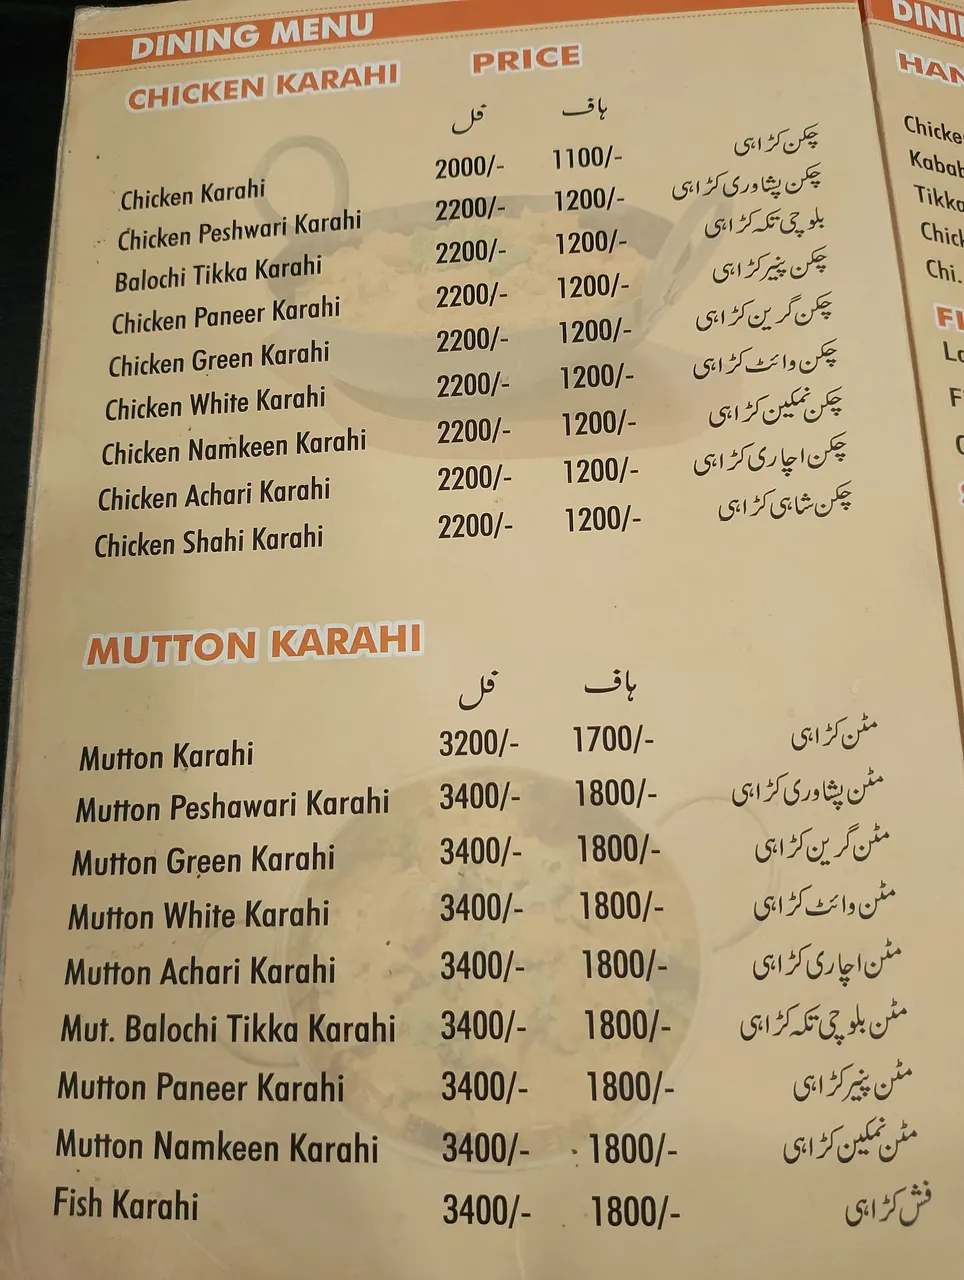 DINING MENU
CHICKEN KARAHI PRICE
فل ہاف
Chicken Karahi 2000/- 1100/- چکن کڑاہی
Chicken Peshwari Karahi 2200/- 1200/- چکن پشاوری کڑاہی
Balochi Tikka Karahi 2200/- 1200/- بلوچی تکہ کڑاہی
Chicken Paneer Karahi 2200/- 1200/- چکن پنیر کڑاہی
Chicken Green Karahi 2200/- 1200/- چکن گرین کڑاہی
Chicken White Karahi 2200/- 1200/- چکن وائٹ کڑاہی
Chicken Namkeen Karahi 2200/- 1200/- چکن نمکین کڑاہی
Chicken Achari Karahi 2200/- 1200/- چکن اچاری کڑاہی
Chicken Shahi Karahi 2200/- 1200/- چکن شاہی کڑاہی
MUTTON KARAHI
فل ہاف
Mutton Karahi 3200/- 1700/- مٹن کڑاہی
Mutton Peshawari Karahi 3400/- 1800/- مٹن پشاوری کڑاہی
Mutton Green Karahi 3400/- 1800/- مٹن گرین کڑاہی
Mutton White Karahi 3400/- 1800/- مٹن وائٹ کڑاہی
Mutton Achari Karahi 3400/- 1800/- مٹن اچاری کڑاہی
Mut. Balochi Tikka Karahi 3400/- 1800/- مٹن بلوچی تکہ کڑاہی
Mutton Paneer Karahi 3400/- 1800/- مٹن پنیر کڑاہی
Mutton Namkeen Karahi 3400/- 1800/- مٹن نمکین کڑاہی
Fish Karahi 3400/- 1800/- فش کڑاہی
Tikka